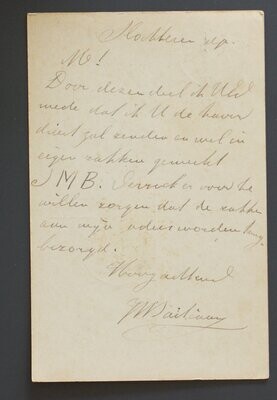 M!
Door dezen deel ik UEd
mede dat ik U de haver
direct zal senden en wel in
eigen zakken gemerkt
J M B. voor te
willen zorgen dat de zakken
aan mijn adres worden
bezorgd.
Hoogachtend